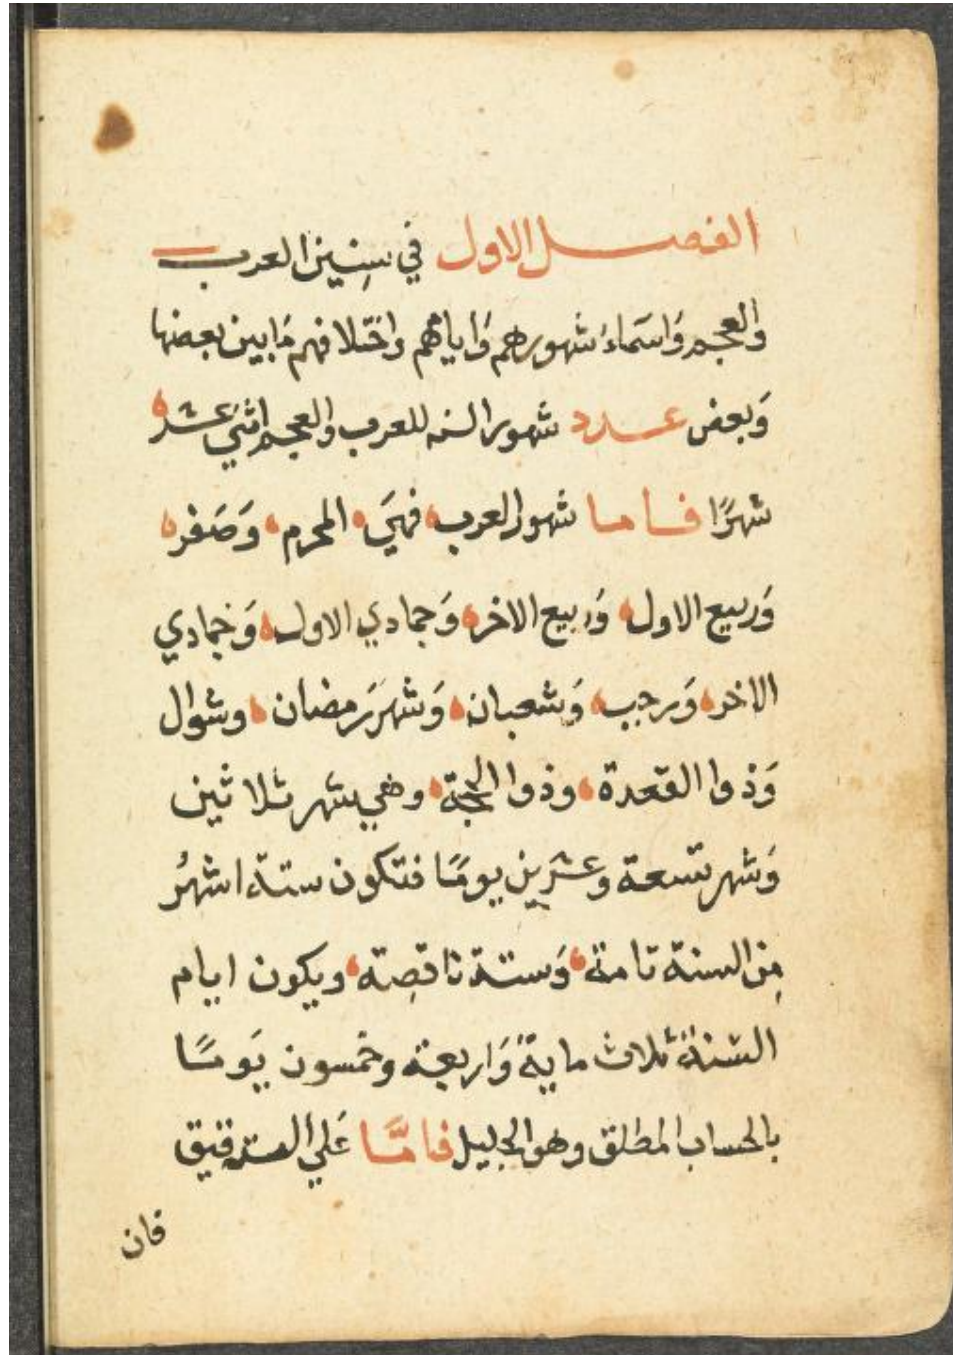 الفصل الاول في سِنِين العرب
والعجم وَاسَماء شهورهم وَايامهم واختلافهم مَابين بعضها
وَبعض عدد شهور السنه للعرب والعجم اثنَي عشر
شهرًا فاما شهور العرب فهيَ المحرم وَصَفر
وَربيع الاول وَربيع الاخر وَجمادي الاول وَجمادي
الاخر وَرجب وَشعبان وَشهر رَمضان وشوال
وَذوا القعدة وذوا الحجة وهي شهر ثلاثين
وَشهر تسعة وعشرِين يومًا فتكون ستة اشهُر
مِن السنة تامة وَستة ناقصِة ويكون ايام
السَنة ثلاث ماية وَاربعة وخمسون يَومًا
بالحساب المطلق وهو الجليل فامَّا عَلي التدقيق
فان